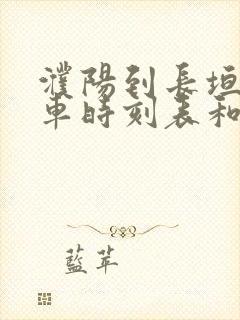 濮陽到長垣
車時刻表和
藍苹